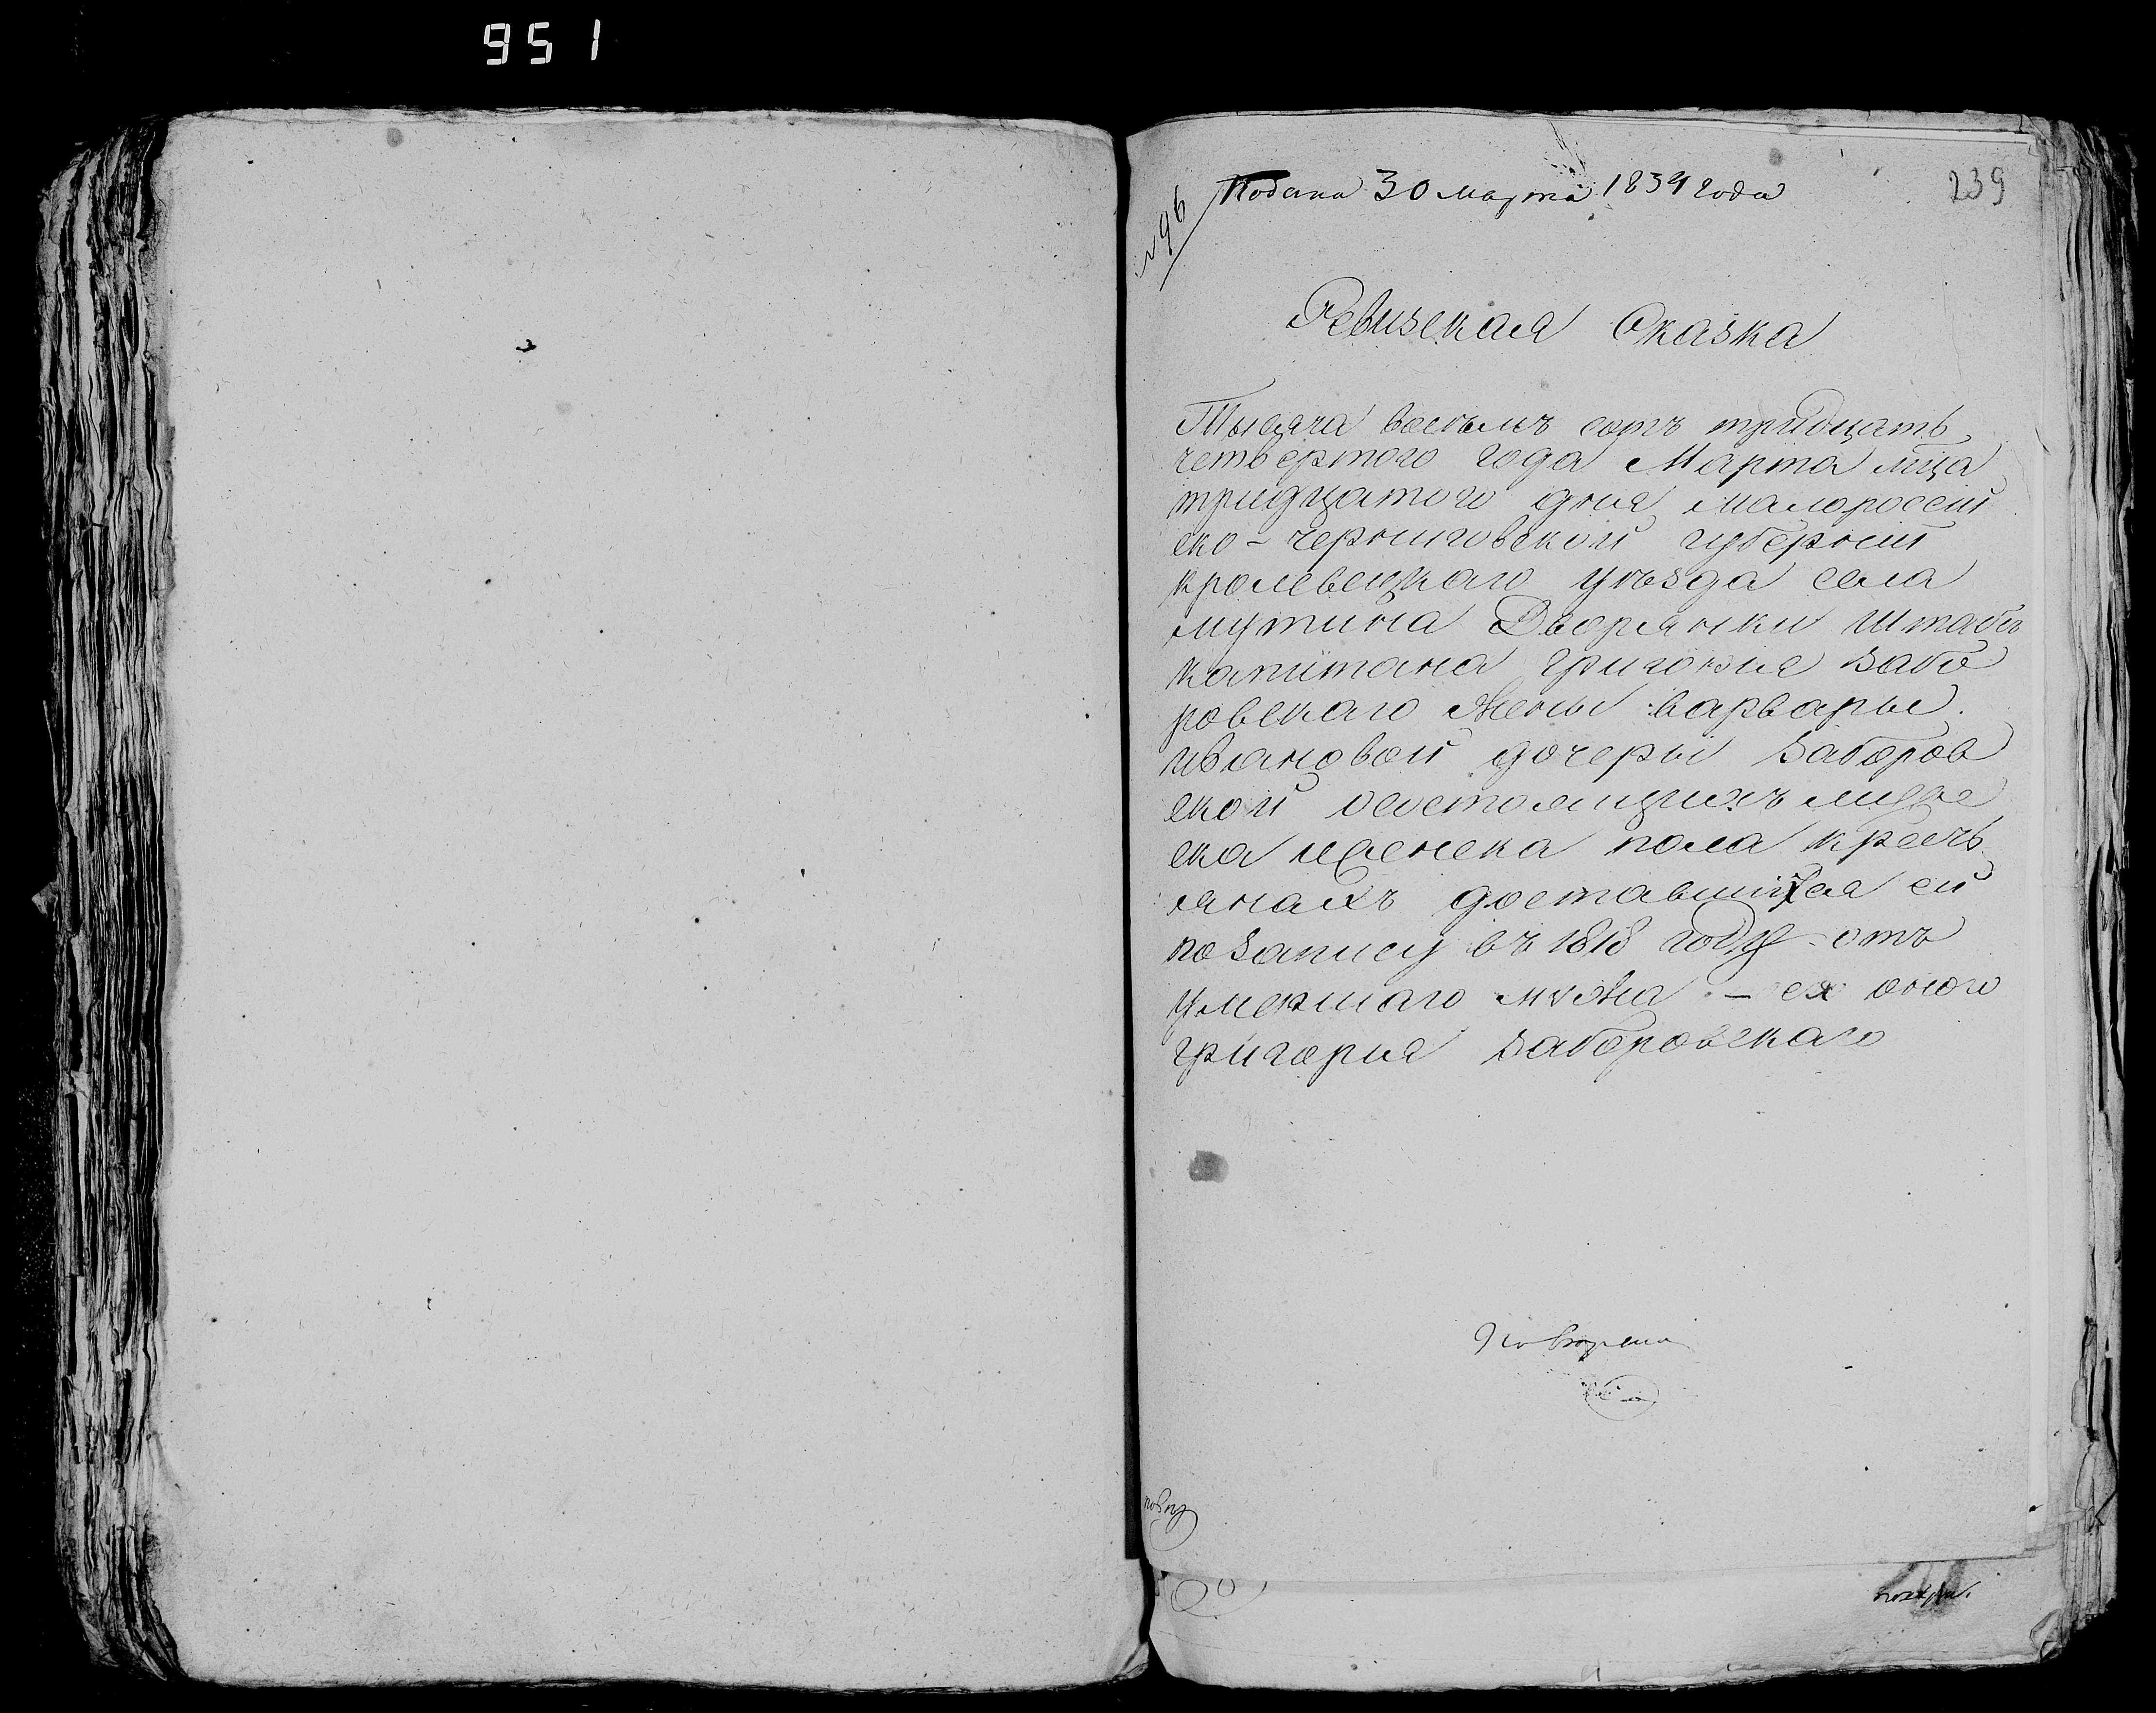 951
№ 96
Подана 30 марта 1834 года
239
Ревизская Сказка
Тысяча восемъ сотъ тридцать
четвертого года Марта мца
тридцатого дня малороссій
ско - черниговской губерніи
кролевецкаго уезда села
мутина Дворянки Штабъ
капитана григория забо
ровскаго жены варвары
ивановой дочеры заборов
ской осостоящихъ мужс
ска иженска пола кресть
янахъ доставшихся ей
по запису въ 1818 году отъ
умершаго мужа - ея оного
григория заборовскаго